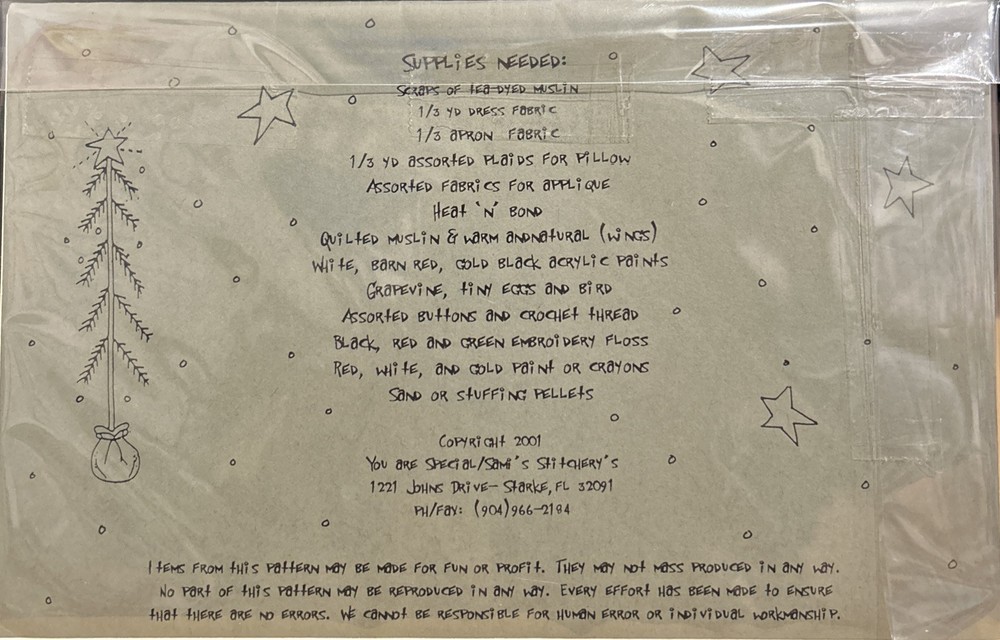 SUPPLIES NEEDED:
SCRAPS OF TEA-DYED MUSLIN
1/3 YD DRESS FABRIC
1/3 APRON FABRIC
1/3 YD ASSORTED PLAIDS FOR PILLOW
ASSORTED FABRICS FOR APPLIQUE
HEAT 'N' BOND
QUILTED MUSLIN & WARM ANDNATURAL (WINGS)
WHITE, BARN RED, GOLD BLACK ACRYLIC PAINTS
GRAPEVINE, TINY EGGS AND BIRD
ASSORTED BUTTONS AND CROCHET THREAD
BLACK, RED AND GREEN EMBROIDERY FLOSS
RED, WHITE, AND GOLD PAINT OR CRAYONS
SAND OR STUFFING PELLETS
COPYRIGHT 2001
YOU ARE SPECIAL/SAMI'S STITCHERY'S
1221 JOHNS DRIVE- STARKE, FL 32091
PH/FAX: (904)966-2184
ITEMS FROM THIS PATTERN MAY BE MADE FOR FUN OR PROFIT. THEY MAY NOT MASS PRODUCED IN ANY WAY.
NO PART OF THIS PATTERN MAY BE REPRODUCED IN ANY WAY. EVERY EFFORT HAS BEEN MADE TO ENSURE
THAT THERE ARE NO ERRORS. WE CANNOT BE RESPONSIBLE FOR HUMAN ERROR OR INDIVIDUAL WORKMANSHIP.